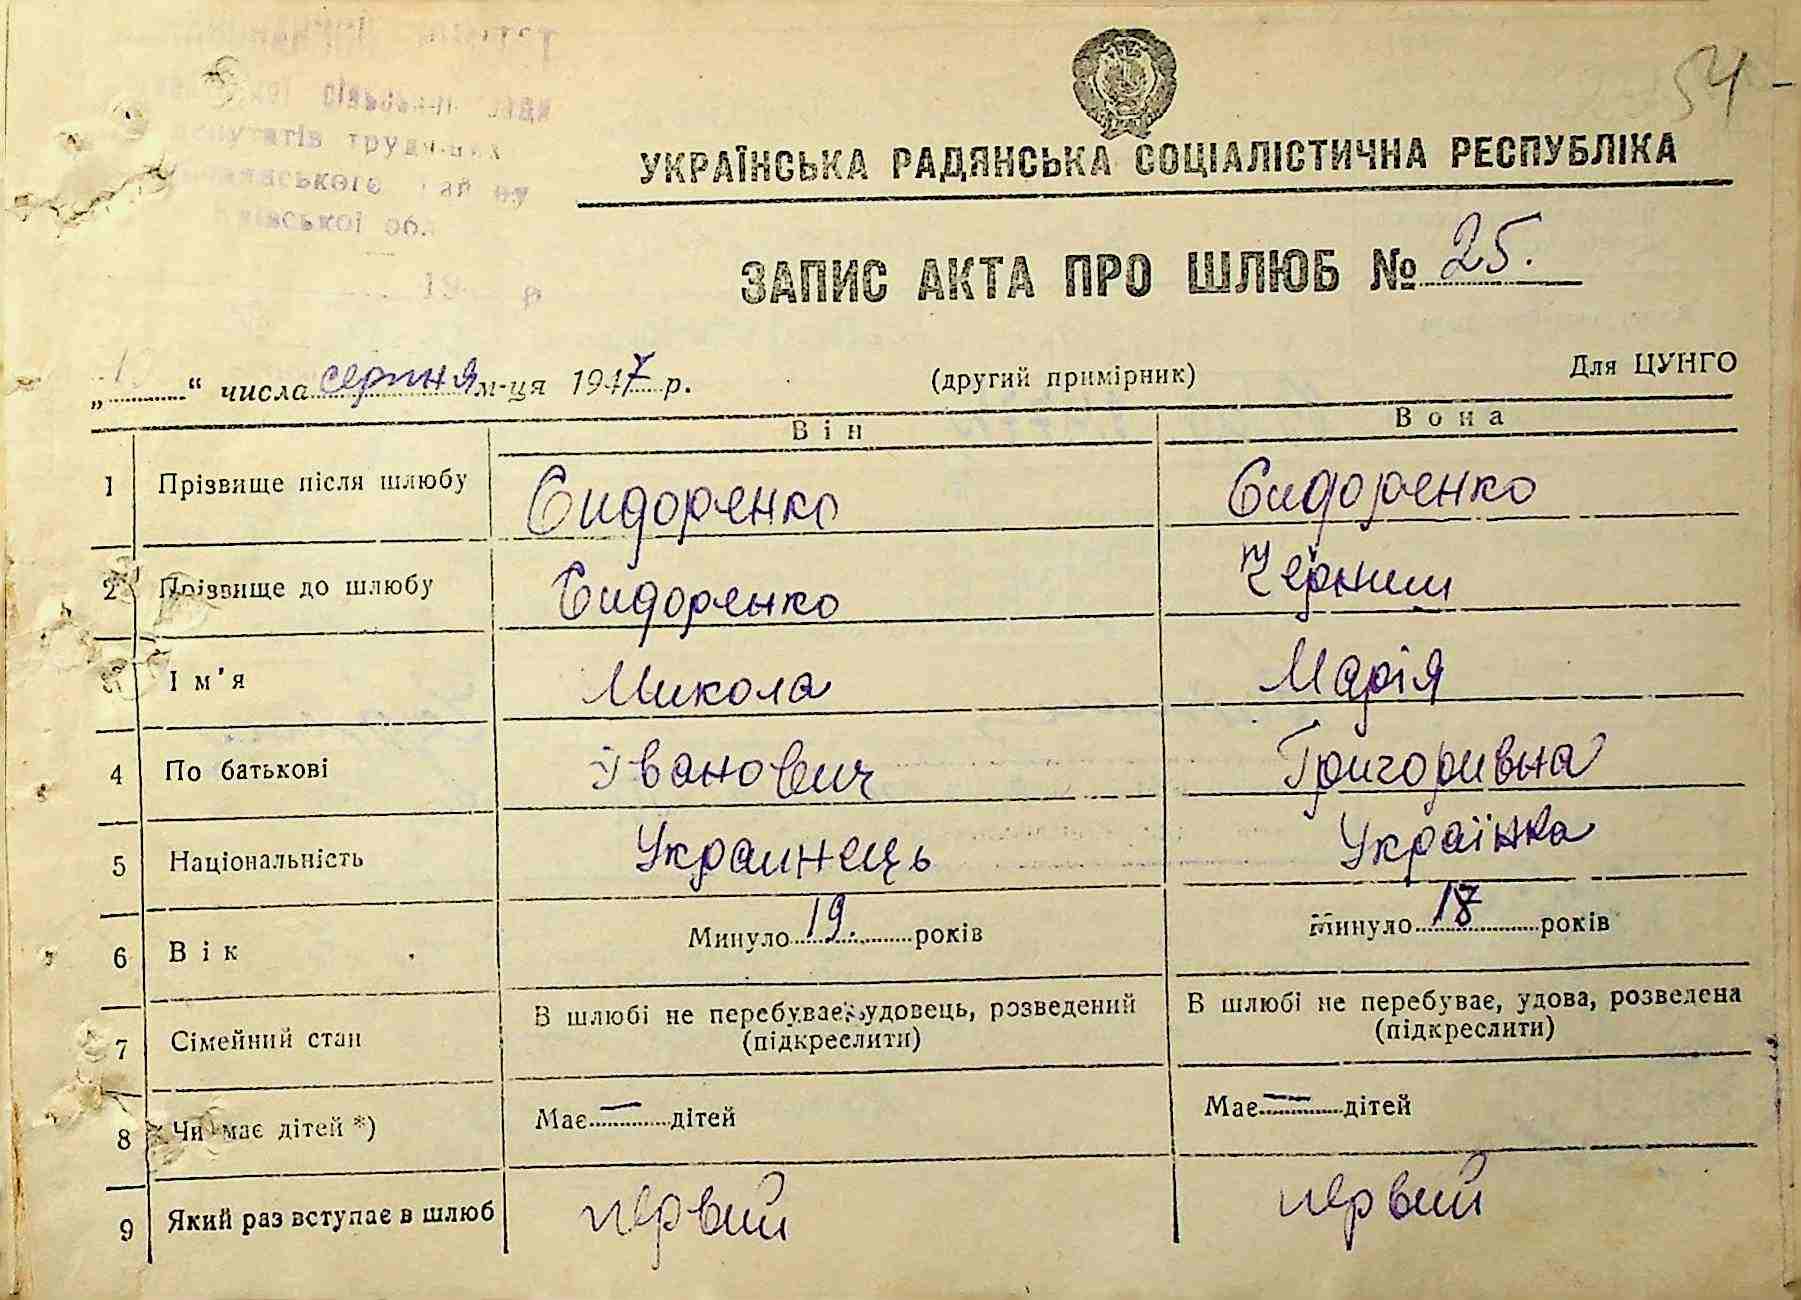 54
депутатів трудящих
Київської обл.
УКРАЇНСЬКА РАДЯНСЬКА СОЦІАЛІСТИЧНА РЕСПУБЛІКА
ЗАПИС АКТА ПРО ШЛЮБ № 25.
„ “ числа серпня м-ця 1947 р. (другий примірник) Для ЦУНГО
Він Вона
1 Прізвище після шлюбу Сидоренко Сидоренко
2 Прізвище до шлюбу Сидоренко
3 Ім'я Микола Марія
4 По батькові Іванович Григоривна
5 Національність Украинець Українка
6 Вік Минуло 19. років Минуло 18 років
7 Сімейний стан В шлюбі не перебуває, удовець, розведений (підкреслити) В шлюбі не перебуває, удова, розведена (підкреслити)
8 Чи має дітей *) Має — дітей Має — дітей
9 Який раз вступає в шлюб первий первий